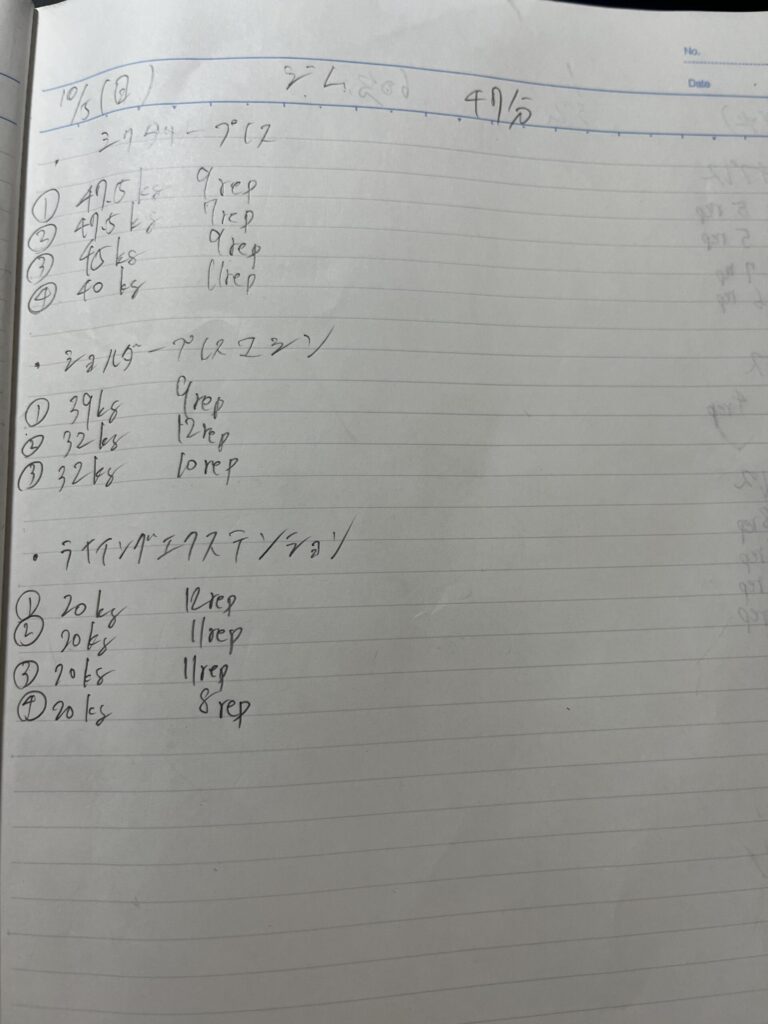 No.
Date
10/5(日) ジム 47分
・ミリタリープレス
① 47.5kg 9rep
② 47.5kg 7rep
③ 45kg 9rep
④ 40kg 11rep
・ショルダープレスマシン
① 39kg 9rep
② 32kg 12rep
③ 32kg 10rep
・ライイングエクステンション
① 20kg 12rep
② 20kg 11rep
③ 20kg 11rep
④ 20kg 8rep